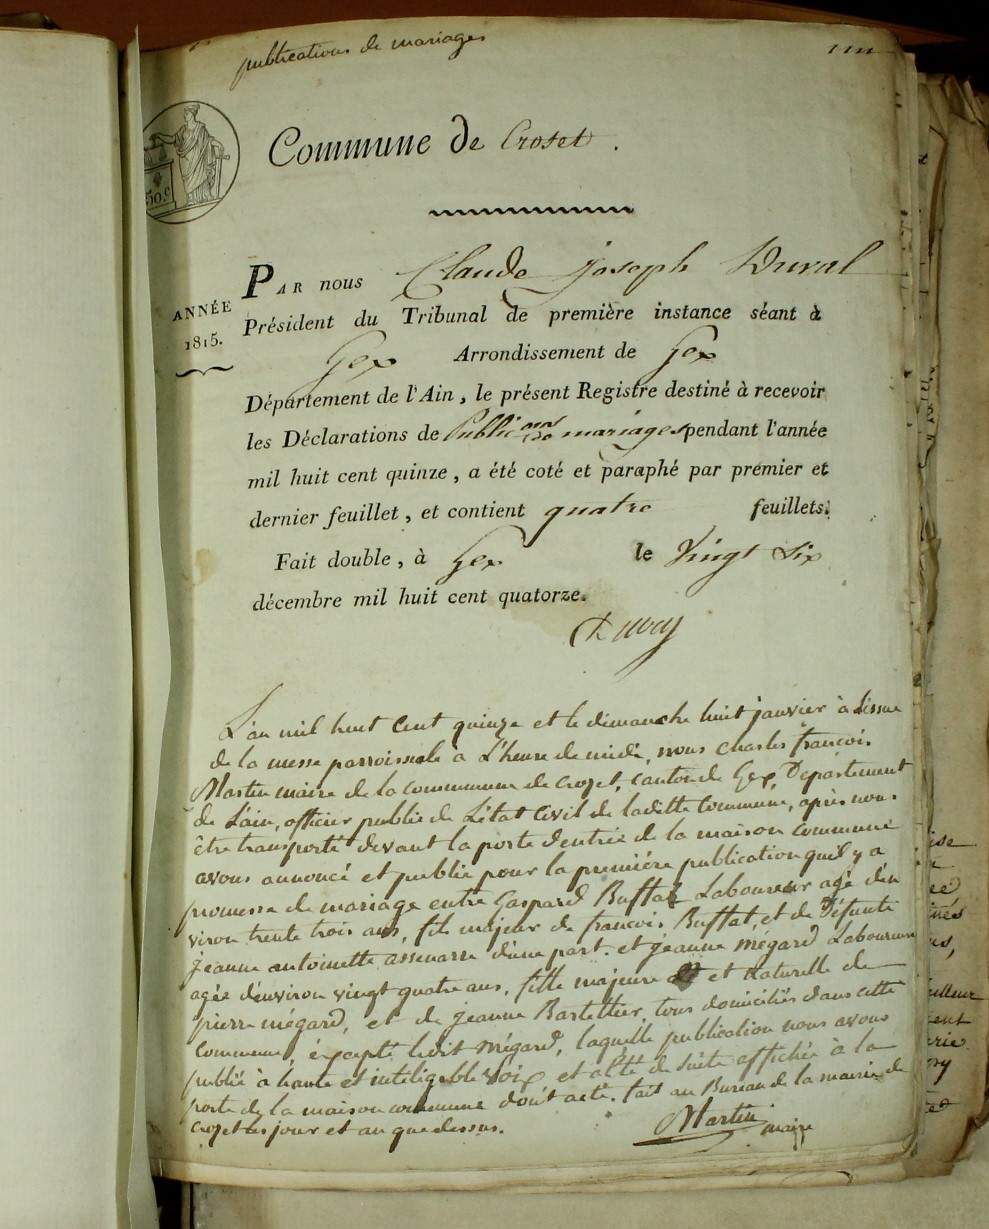 publications de mariages
Commune de Croset.
50 c
ANNÉE
1815.
PAR nous Claude Joseph Duval
Président du Tribunal de première instance séant à
Gex Arrondissement de Gex
Département de l'Ain, le présent Registre destiné à recevoir
les Déclarations de Publicons de mariages pendant l'année
mil huit cent quinze, a été coté et paraphé par premier et
dernier feuillet, et contient quatre feuillets.
Fait double, à Gex le Vingt Six
décembre mil huit cent quatorze.
L'an mil huit Cent quinze et le dimanche huit janvier à L'issue
de la messe parroissiale à L'heure de midi, nous Charles françois
Martin maire de la Commune de Crozet, Canton de Gex, Departement
de Lain, officier public de L'état Civil de laditte Commune, après nous
être transporté devant la porte d'entrée de la maison Commune
avons annoncé et publié pour la première publication quil y a
promesse de mariage entre Gaspard Buffat Laboureur agé d'en
viron trente trois ans, fils majeur de françois Buffat, et de Défunte
Jeanne antoinette d'une part. et Jeanne mégard Laboureure
agée d'environ vingt quatre ans, fille majeure et naturelle de
pierre mégard, et de Jeanne tous domiciliés dans cette
Commune, éxcepté ledit Mégard, laquelle publication nous avons
publié à haute et inteligeble voix et a été de suite affichée à la
porte de la maison commune dont acte. fait au Bureau de la mairie de
Crozet les jour et an que dessus.
Martin maire